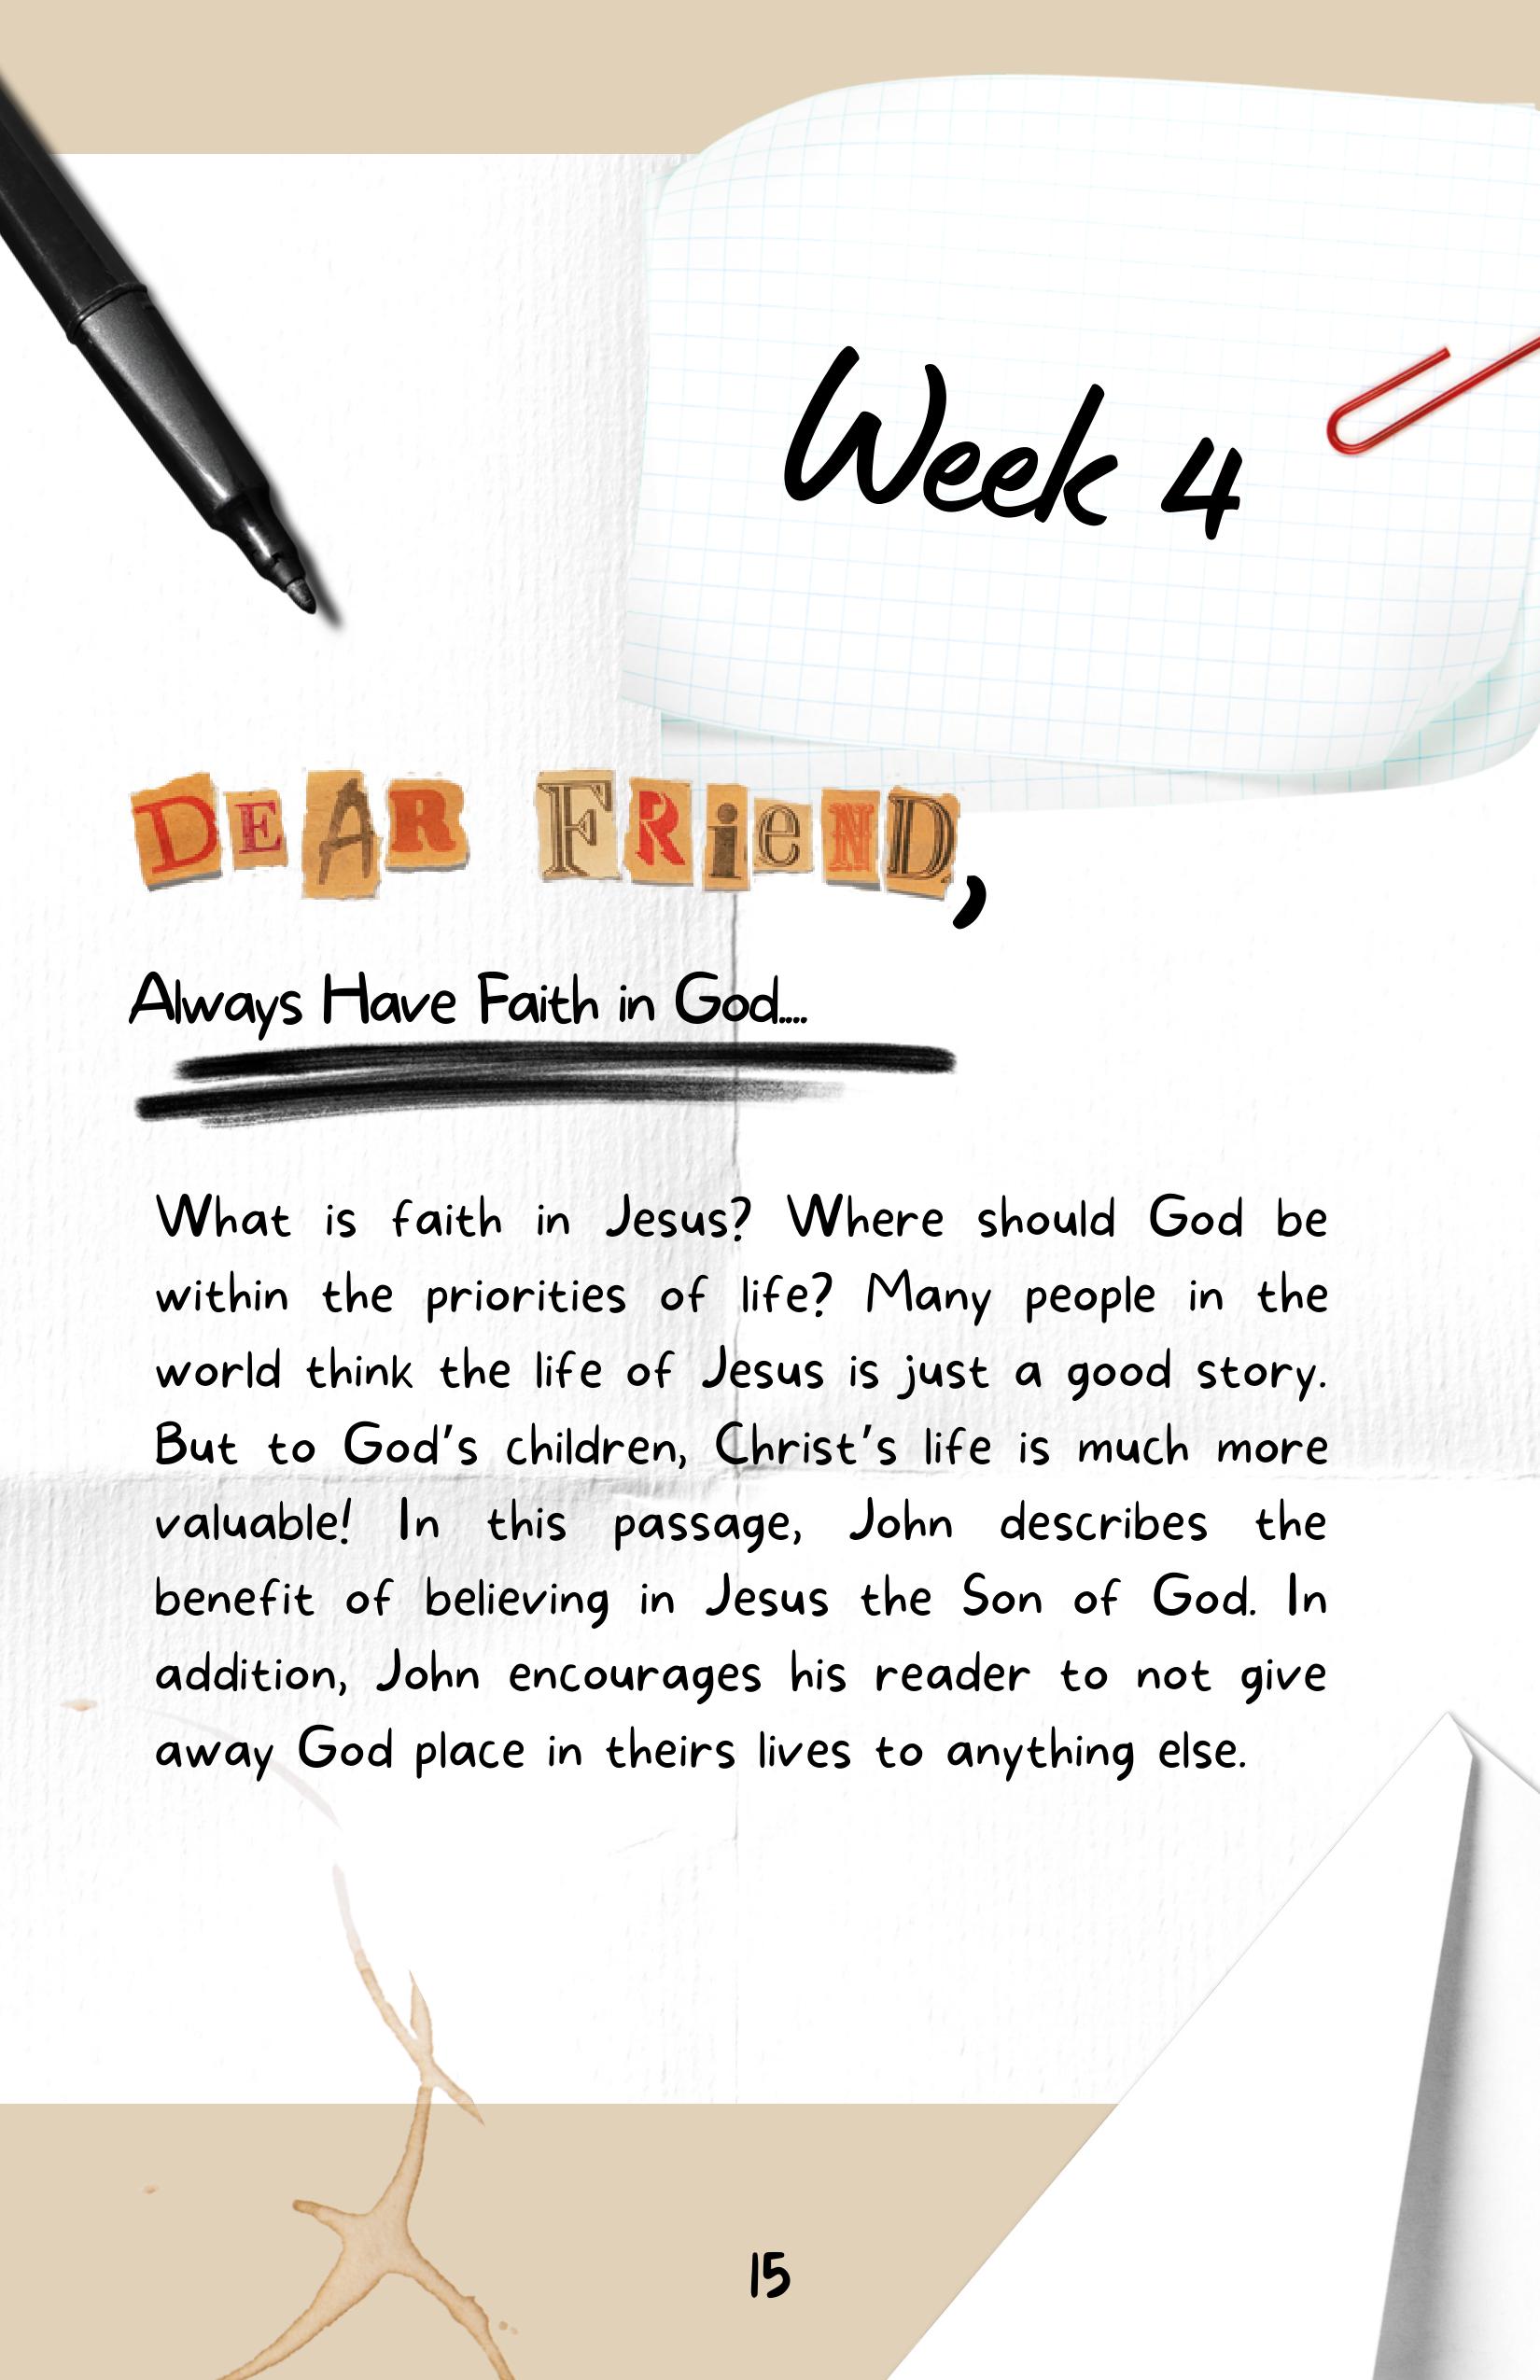 Week 4
DEAR FRieND,
Always Have Faith in God....
What is faith in Jesus? Where should God be
within the priorities of life? Many people in the
world think the life of Jesus is just a good story.
But to God's children, Christ's life is much more
valuable! In this passage, John describes the
benefit of believing in Jesus the Son of God. In
addition, John encourages his reader to not give
away God place in theirs lives to anything else.
15